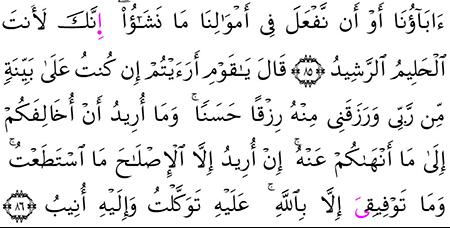 ءَابَآؤُنَا أَوْ أَن نَّفْعَلَ فِى أَمْوَٰلِنَا مَا نَشَٰٓؤُا۟ ۖ إِنَّكَ لَأَنتَ
ٱلْحَلِيمُ ٱلرَّشِيدُ ۝٨٥ قَالَ يَٰقَوْمِ أَرَءَيْتُمْ إِن كُنتُ عَلَىٰ بَيِّنَةٍ
مِّن رَّبِّى وَرَزَقَنِى مِنْهُ رِزْقًا حَسَنًا ۚ وَمَآ أُرِيدُ أَنْ أُخَالِفَكُمْ
إِلَىٰ مَآ أَنْهَىٰكُمْ عَنْهُ ۚ إِنْ أُرِيدُ إِلَّا ٱلْإِصْلَٰحَ مَا ٱسْتَطَعْتُ ۚ
وَمَا تَوْفِيقِىٓ إِلَّا بِٱللَّهِ ۚ عَلَيْهِ تَوَكَّلْتُ وَإِلَيْهِ أُنِيبُ ۝٨٦